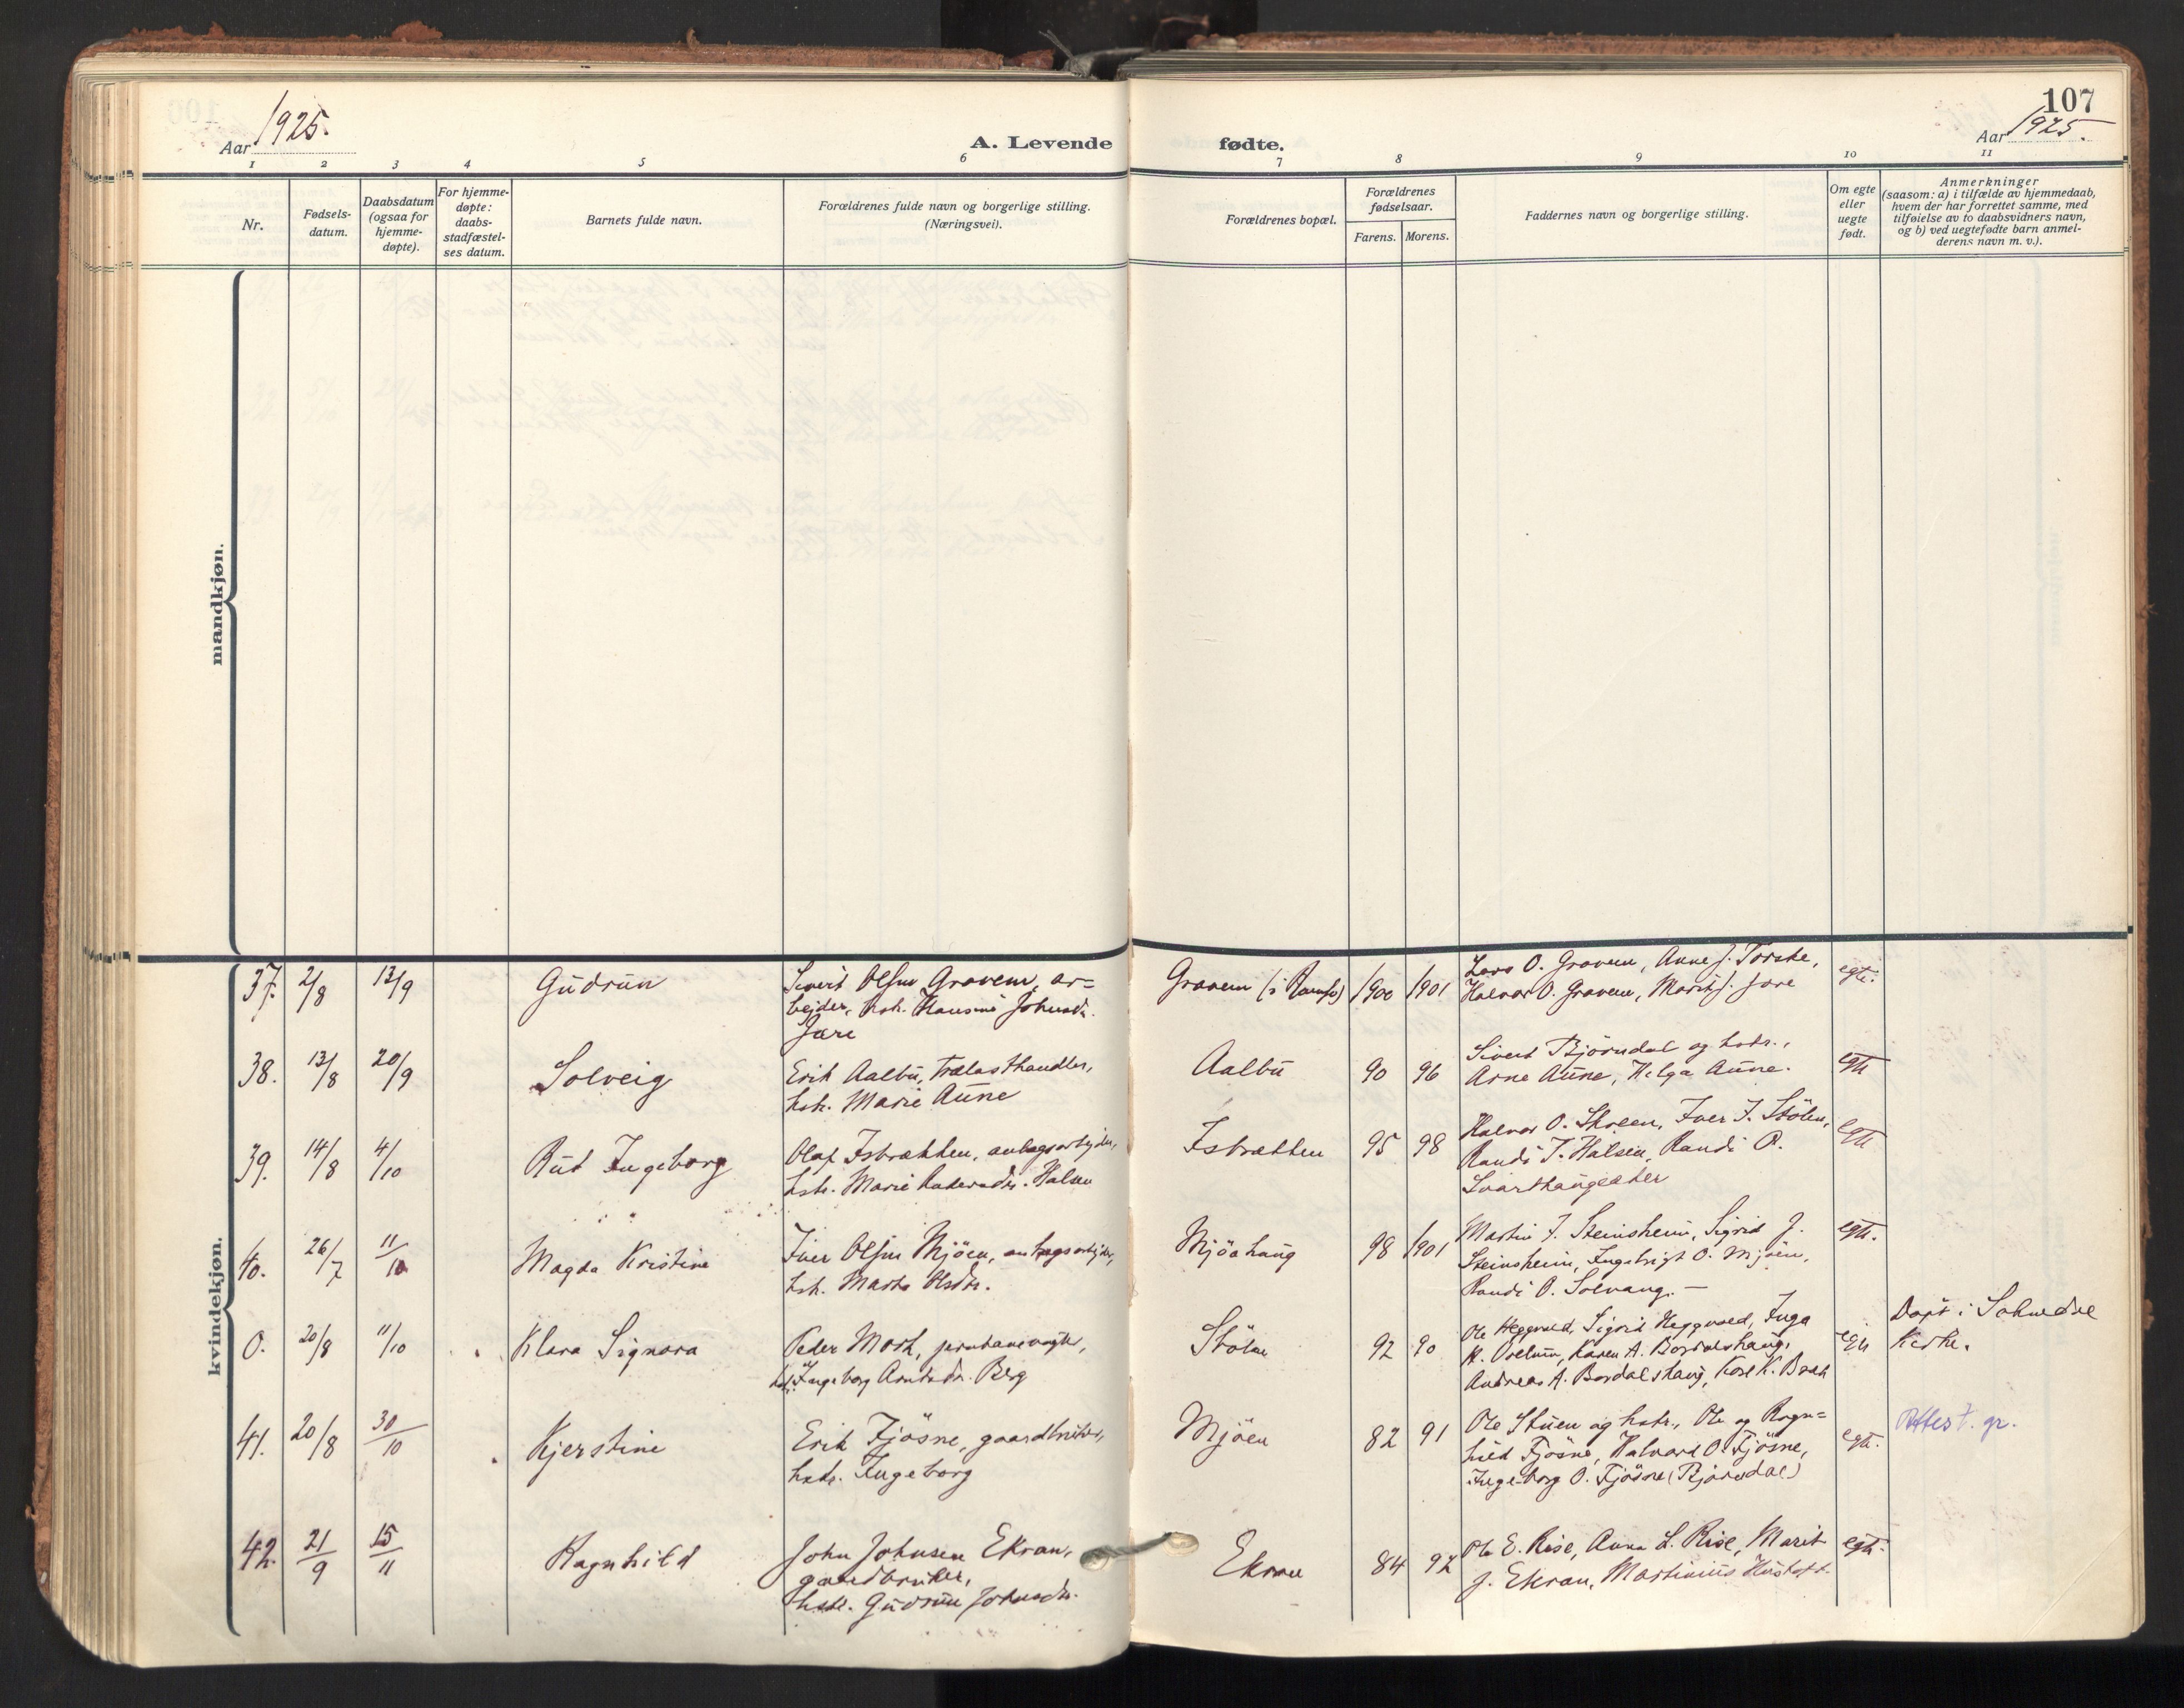 107
Aar 1925.
A. Levende
fødte.
Aar 1925.
1 2 3 4 5 6 7 8 9 10 11
Nr.
Fødsels-
datum.
Daabsdatum
(ogsaa for
hjemme-
døpte).
For hjemme-
døpte:
daabs-
stadfæstel-
ses datum.
Barnets fulde navn.
Forældrenes fulde navn og borgerlige stilling.
(Næringsvei).
Forældrenes bopæl.
Forældrenes
fødselsaar.
Farens. Morens.
Faddernes navn og borgerlige stilling.
Om egte
eller
uegte
født.
Anmerkninger
(saasom: a) i tilfælde av hjemmedaab,
hvem der har forrettet samme, med
tilføielse av to daabsvidners navn,
og b) ved uegtefødte barn anmel-
derens navn m. v.).
mandkjøn.
kvindekjøn.
37. 2/8 13/9 Gudrun
Sivert Olsen Gravem, ar=
beider, hstr. Johnsdr.
Jære
Gravem 1900 1901
Lars O. Gravem, Anne J. Torske,
Halvor O. Gravem, Marit J. Jære
egte.
38. 13/8 20/9 Solveig
Erik Aalbu, trælasthandler,
hstr. Marie Aune
Aalbu 90 96
Sivert Bjørndal og hstr.,
Arne Aune, Helga Aune.
egte
39. 14/8 4/10 Rut Ingeborg
Olaf Isbrækken, anlægsarbeider,
hstr. Marie Halsen
Isbrækken 95 98
Halvor O. Skolen, Iver J. Stölen,
Randi J. Halsen, Randi O.
Svarthaugsæter
egte
40. 26/7 11/10 Magda Kristine
Iver Olsen Mjöen, anlægsarbeider,
hstr. Marta Olsdtr.
Mjöahaug 98 1901
Martin J. Steinsheim, Sigrid J.
Steinsheim, Ingebrigt O. Mjöen,
Randi O. Solvang. —
egte.
0. 20/8 11/10 Klara Signora
Peder Mosk, jernbanevogter,
hstr. Ingeborg Arntsdr. Berg
Stölen 92 90
Ole Heggvold, Sigrid Heggvold, Inga
K. Karen A. Bordalshaug,
Andreas A. Bordalshaug, Kåre K.
egte
Døpt i Soknedal
kirke.
41. 20/8 30/10 Kjerstine
Erik Fjösne, gaardbruker,
hstr. Ingeborg
Mjöen 82 91
Ole Stuen og hstr., Ole og Ragn=
hild Fjösne, Halvard O. Fjösne,
Ingeborg O. Fjösne (Bjørndal)
egte.
Attest. gr.
42. 21/9 15/11 Ragnhild
John Johnsen Ekran,
gaardbruker,
hstr. Gudrun Johnsdr.
Ekran 84 92
Ole E. Rise, Anna L. Rise, Marit
J. Ekran, Martinius Hustoft.
egte.